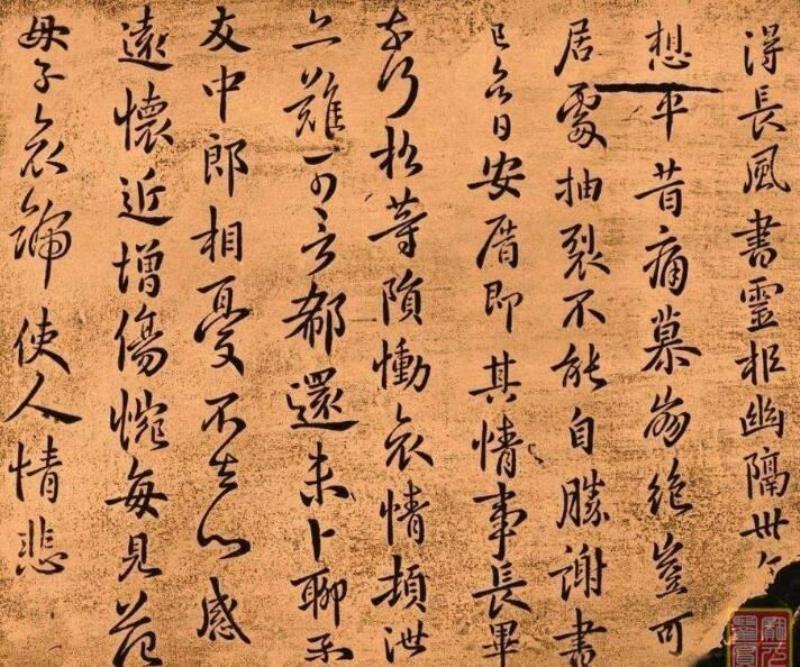 得長風書靈柩幽隔卅
想平昔痛慕崩絶豈可
居處抽裂不能自勝謝書
已日安厝即其情事長畢
松等隕慟哀情頓泄
亦難可言郗還未卜聊示
友中郎相憂不去心感
遠懷近增傷惋每見范
母子哀號使人情悲